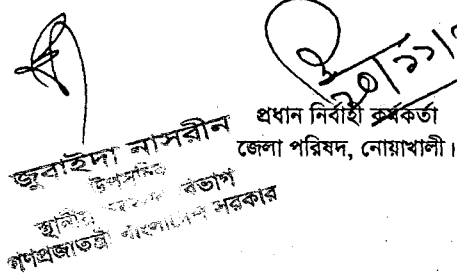 ২০/১১/
প্রধান নির্বাহী কর্মকর্তা
জেলা পরিষদ, নোয়াখালী।
জুবাইদা নাসরীন
উপসচিব
স্থানীয় সরকার বিভাগ
গণপ্রজাতন্ত্রী বাংলাদেশ সরকার